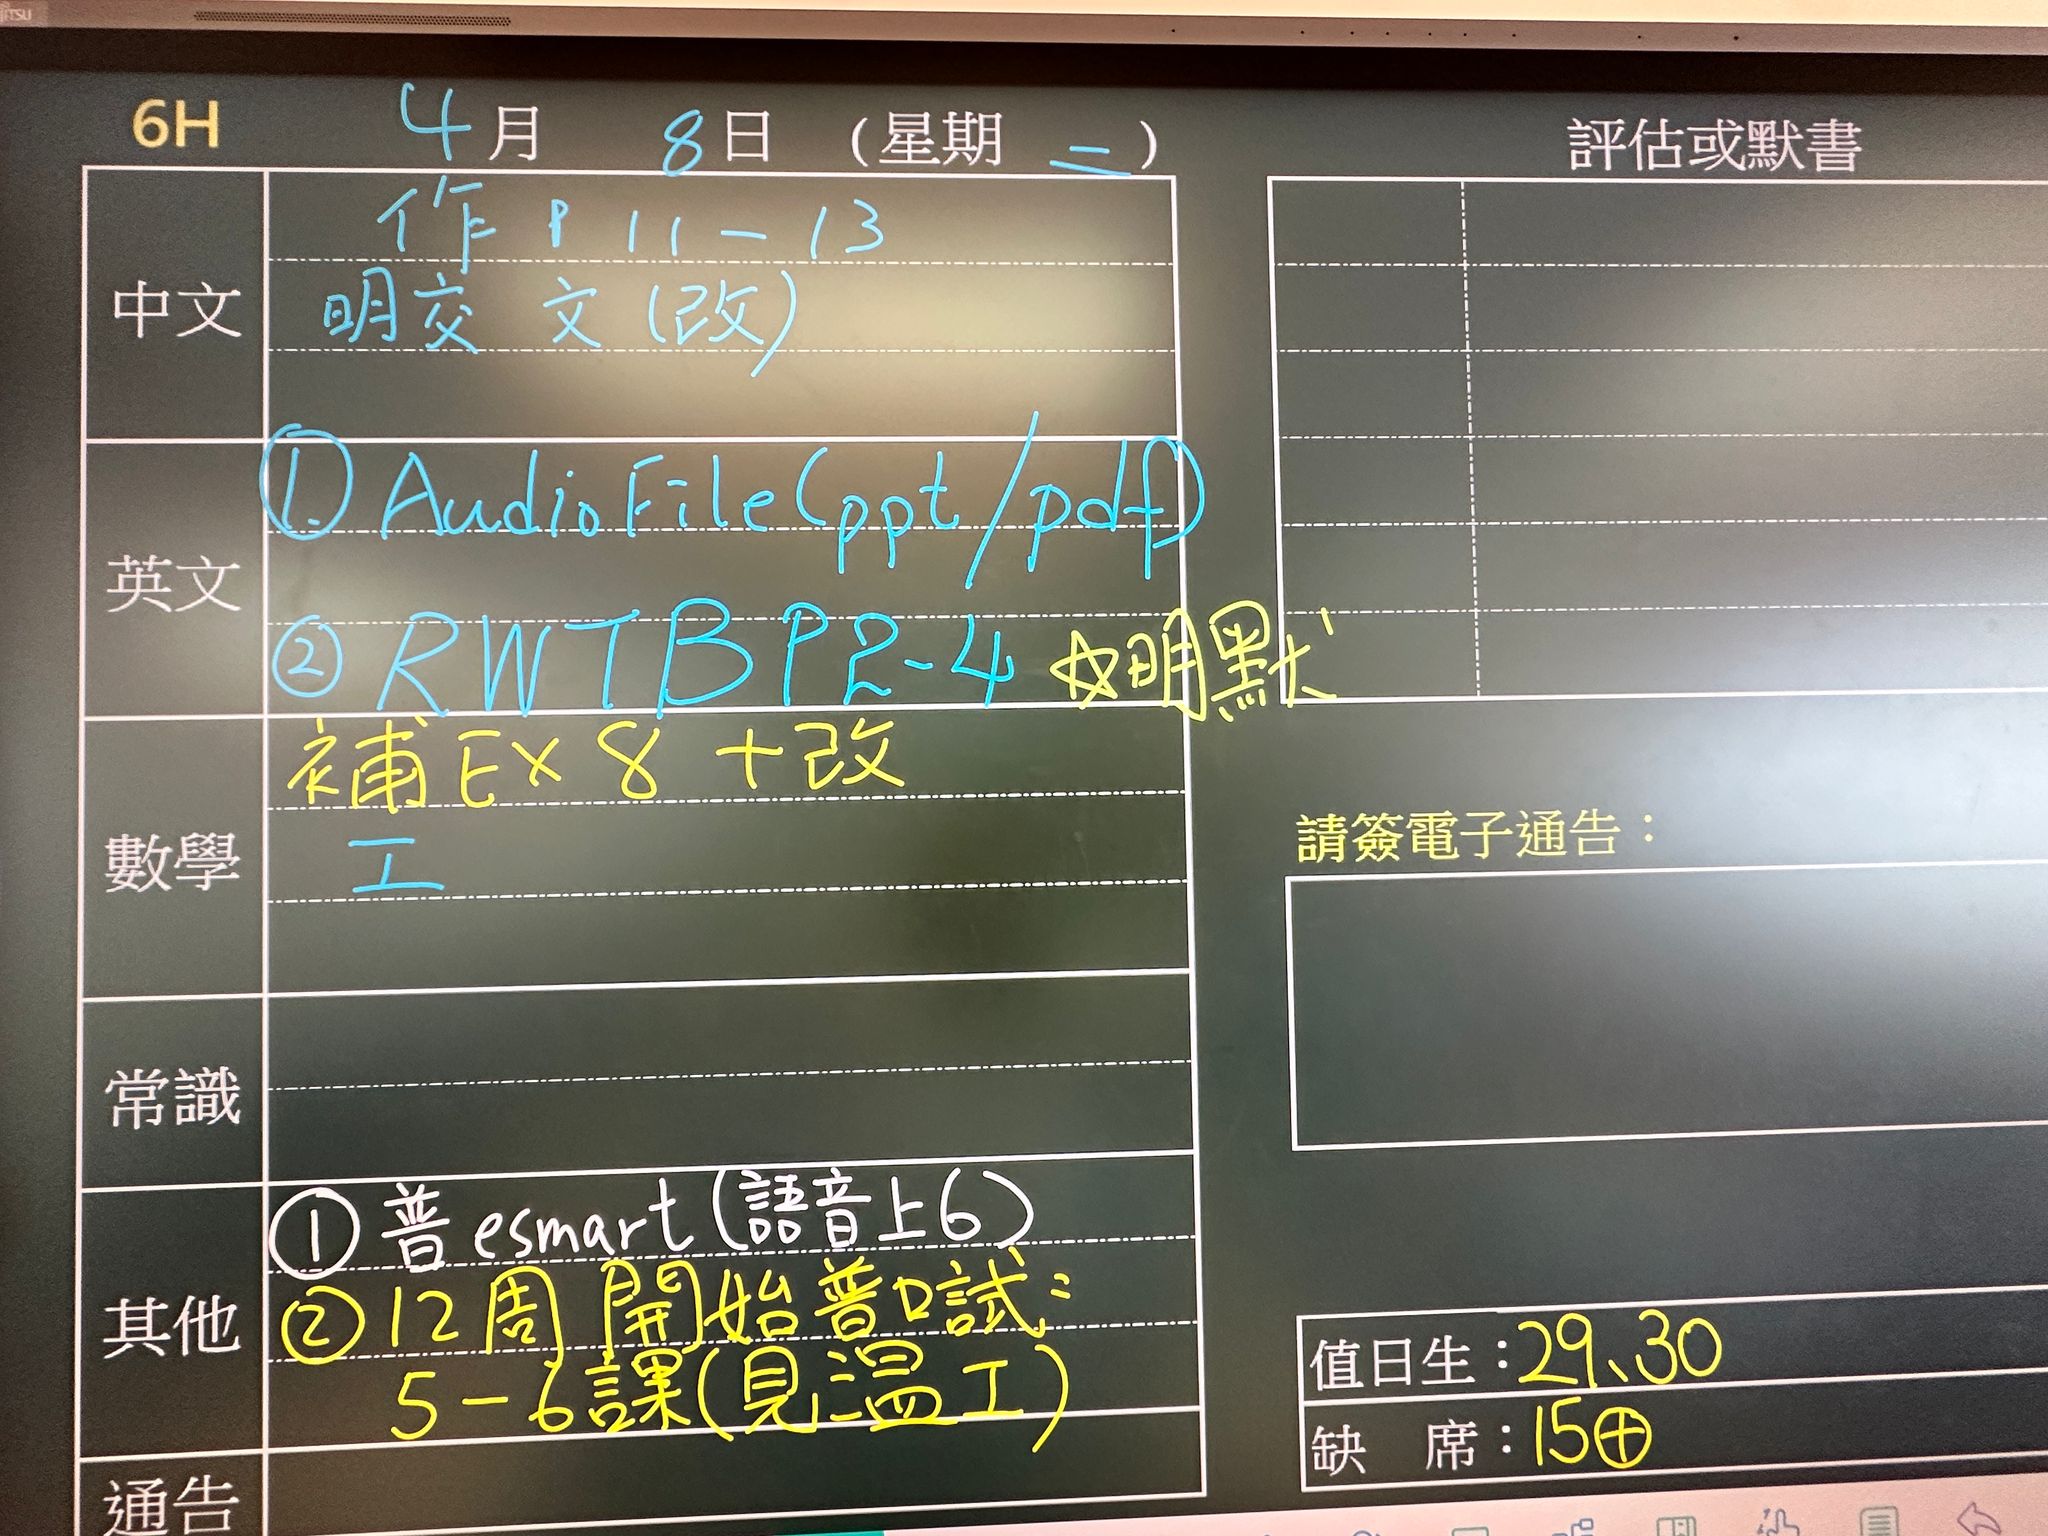 6H 4月 8日 (星期 二)
中文
作 P 11-13
明交 文(改)
英文
① AudioFile(ppt/pdf)
② RWTB P2-4 ☆明默
數學
補Ex 8 +改
工
常識
其他
① 普esmart(語音上6)
② 12周開始普口試:
5-6課(見溫工)
通告
評估或默書
請簽電子通告：
值日生：29、30
缺 席：15⊕